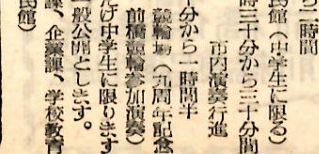 ら一時間
民館（中学生に限る）
時三十分から三十分間
市内演奏行進
十分から一時間半
競輪場（九周年記念
前橋競輪参加演奏）
だけ中学生に限ります
一般公開とします。
課、企業課、学校教育
民館）